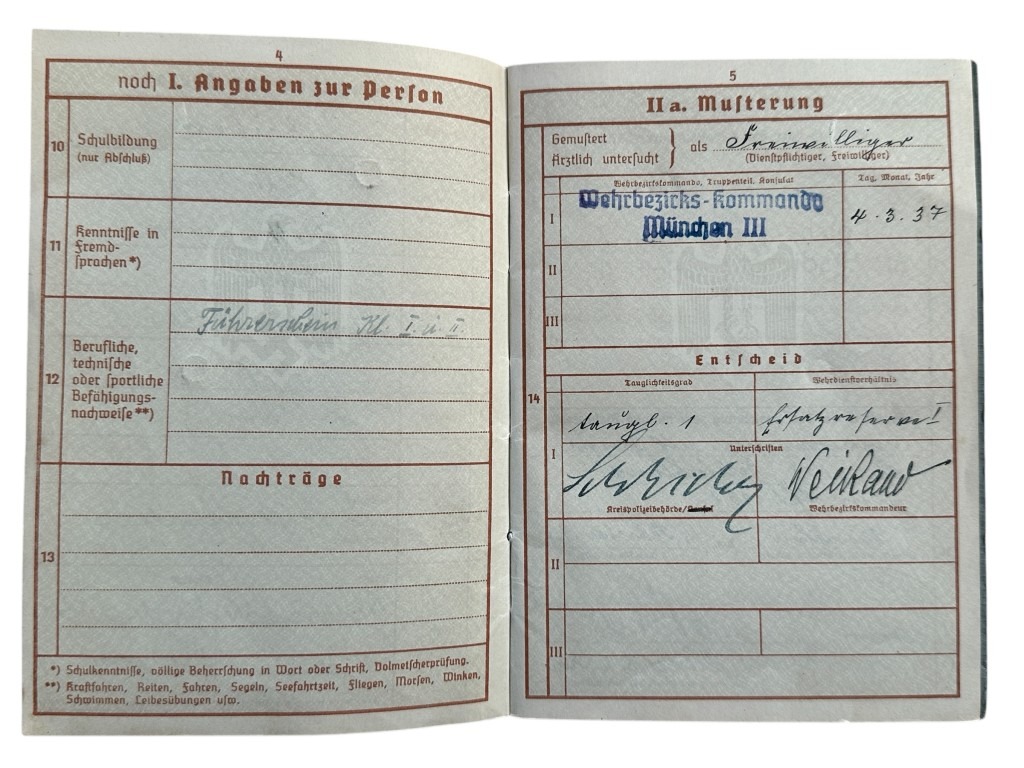 4
noch I. Angaben zur Person
10 Schulbildung
(nur Abschluß)
11 Kenntnisse in
Fremd-
sprachen*)
12 Berufliche,
technische
oder sportliche
Befähigungs-
nachweise**)
Führerschein Kl. I. u. II.
Nachträge
13
*) Schulkenntnisse, völlige Beherrschung in Wort oder Schrift, Dolmetscherprüfung.
**) Kraftfahren, Reiten, Fahren, Segeln, Seefahrtzeit, Fliegen, Morsen, Winken,
Schwimmen, Leibesübungen usw.
5
II a. Musterung
Gemustert
Ärztlich untersucht } als Freiwilliger
(Dienstpflichtiger, Freiwilliger)
Wehrbezirkskommando, Truppenteil, Konsulat
Tag, Monat, Jahr
I Wehrbezirks-Kommando
München III
4.3.37
II
III
Entscheid
14
Tauglichkeitsgrad
Wehrdienstverhältnis
I taugl. 1
Ersatzreserve I
Unterschriften
Kreispolizeibehörde/
Wehrbezirkskommandeur
II
III